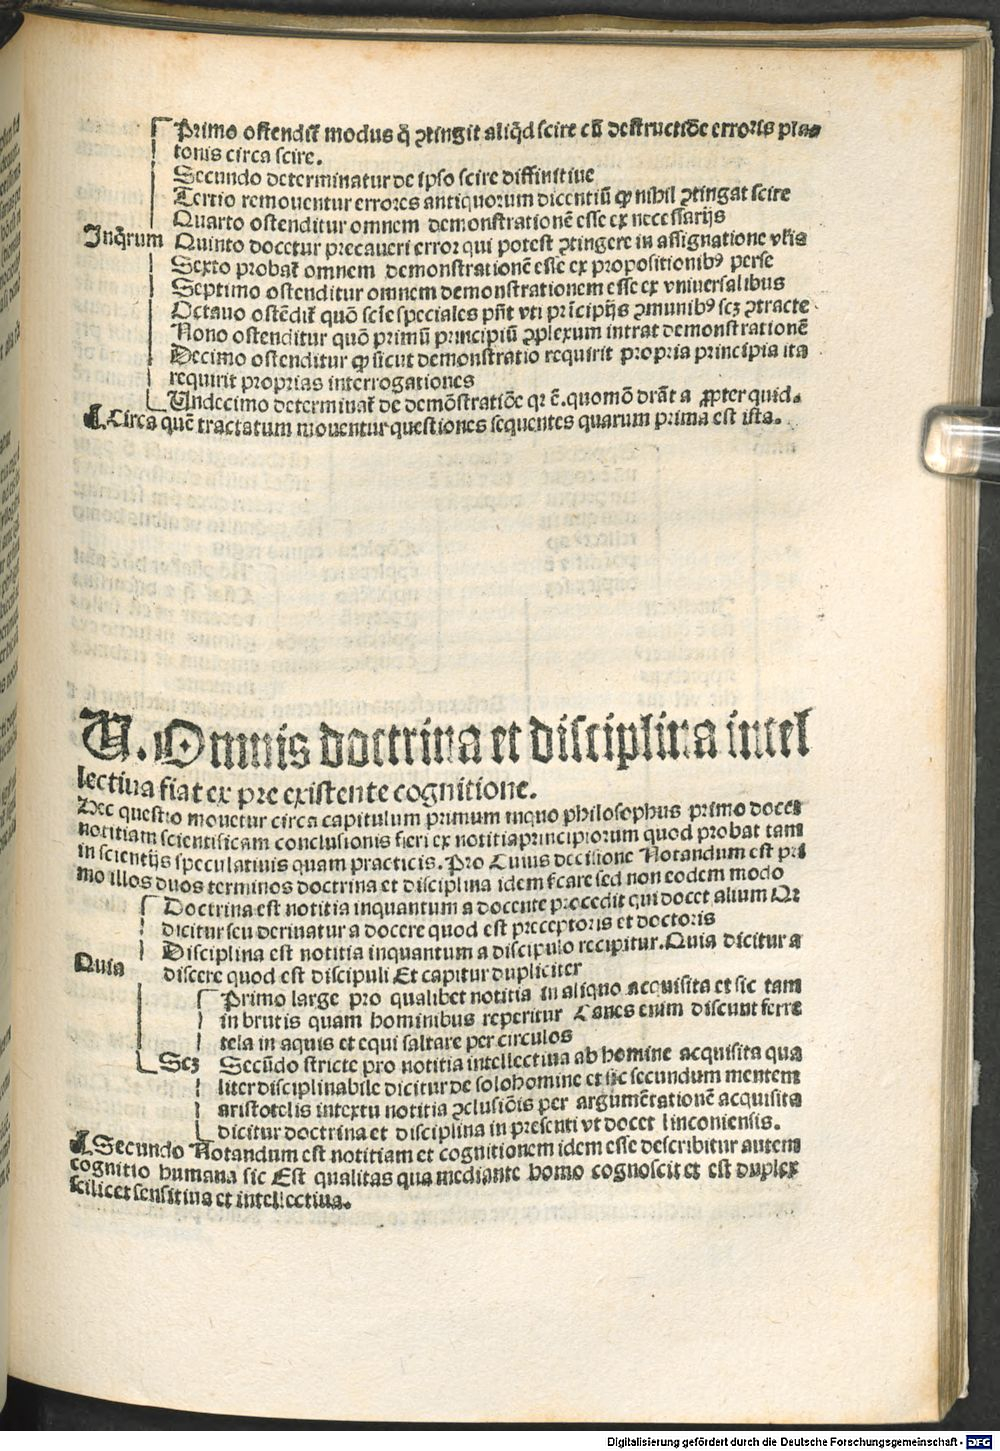 Primo ostendit̃ modus q̃ ꝯtingit aliq̃d scire cũ destructiõe erroris pla⸗
tonis circa scire.
Secundo determinatur de ipso scire diffinitiue
Tertio remouentur errores antiquorum dicentiũ ꝙ nihil ꝯtingat scire
Quarto ostenditur omnem demonstrationẽ esse ex necessarijs
Inq̃rum Quinto docetur precaueri error qui potest ꝯtingere in assignatione vl̃is
Sexto probat̃ omnem demonstrationẽ esse ex propositionibꝰ perse
Septimo ostenditur omnem demonstrationem esse ex vniuersalibus
Octauo ostẽdit̃ quõ scie speciales pñt vti prĩcipijs ꝯmunibꝰ scꝫ ꝯtracte
Nono ostenditur quõ primũ principiũ ꝯplexum intrat demonstrationẽ
Decimo ostenditur ꝙ sicut demonstratio requirit propria principia ita
requirit proprias interrogationes
Undecimo determinat̃ de demõstratiõe qꝛ ẽ. quomõ drãt a ꝓpter quid.
¶ Circa quẽ tractatum mouentur questiones sequentes quarum prima est ista.
U. Omnis doctrina et disciplina intel
lectiua fiat ex pre existente cognitione.
Hec questio mouetur circa capitulum primum inquo philosophus primo docet
notitiam scientificam conclusionis fieri ex notitiaprincipiorum quod probat tam
in scientijs speculatiuis quam practicis. Pro Cuius decisione Notandum est pri
mo illos duos terminos doctrina et disciplina idem f̃care sed non eodem modo
Doctrina est notitia inquantum a docente procedit qui docet alium Qꝛ
dicitur seu deriuatur a docere quod est preceptoris et doctoris
Disciplina est notitia inquantum a discipulo recipitur. Quia dicitur a
Quia discere quod est discipuli Et capitur dupliciter
Primo large pro qualibet notitia in aliquo acquisita et sic tam
in brutis quam hominibus reperitur Canes enim discunt ferre
tela in aquis et equi saltare per circulos
Scꝫ Secũdo stricte pro notitia intellectiua ab homine acquisita qua
liter disciplinabile dicitur de solohomine et sic secundum mentem
aristotelis intextu notitia ꝯclusiõis per argumẽtationẽ acquisita
dicitur doctrina et disciplina in presenti vt docet linconiensis.
¶ Secundo Notandum est notitiam et cognitionem idem esse describitur autem
cognitio humana sic Est qualitas qua mediante homo cognoscit et est duplex
scilicet sensitiua et intellectiua.
Digitalisierung gefördert durch die Deutsche Forschungsgemeinschaft - DFG